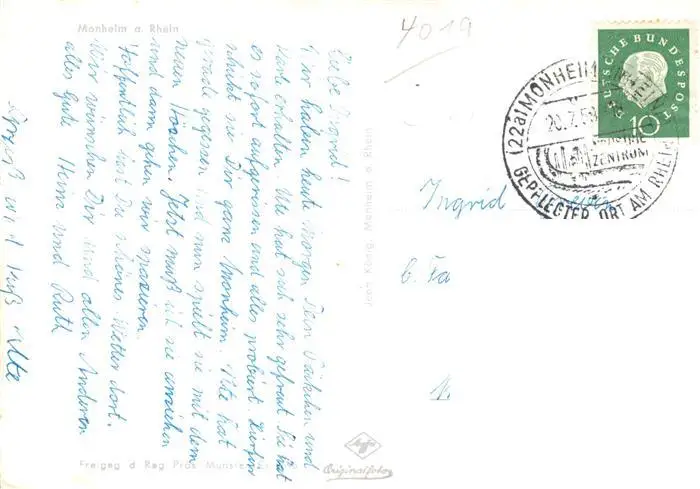 Monheim a. Rhein
Liebe Ingrid!
Wir haben heute morgen Dein Päckchen und
Karte erhalten. Ute hat sich sehr gefreut. Sie hat
es sofort aufgerissen und alles probiert. Dafür
schickt sie Dir ganz Monheim. Ute hat
gerade gegessen und nun spielt sie mit dem
neuen Höschen. Jetzt muß ich sie anziehen
und dann gehen wir spazieren.
Hoffentlich hast Du schönes Wetter dort.
Wir wünschen Dir und allen Anderen
alles Gute Heinz und Ruth
Gruß und Kuß Ute
Freigeg d Reg Präs Münster
Jean König, Monheim a Rhein
Agfa
Originalfoto
4019
DEUTSCHE BUNDESPOST
10
(22a) MONHEIM (RHEIN)
20.7.59
ZENTRUM
GEPFLEGTER ORT AM RHEIN
Ingrid
b. Fa